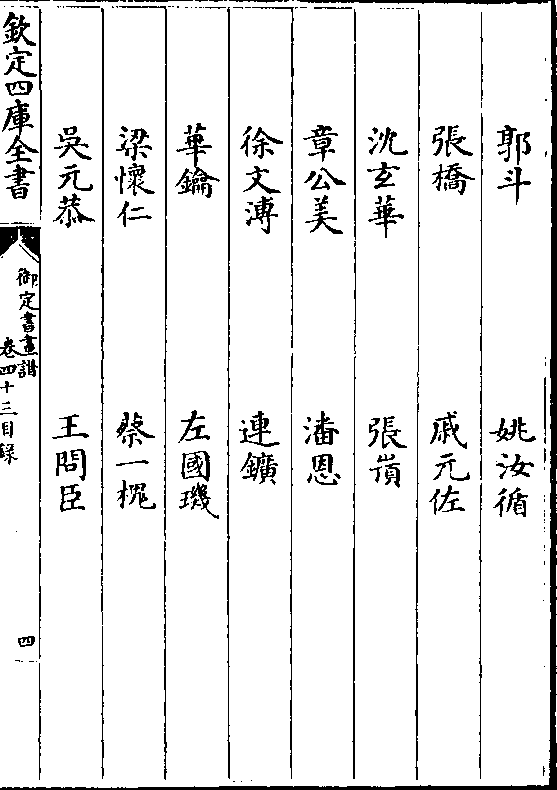 郭斗 姚汝循
張橋 戚元佐
沈玄華 張嵿
章公美 潘恩
徐文溥 連鑛
華鑰 左國璣
梁懷仁 蔡一槐
吳元恭 王問臣
欽定四庫全書 御定書畫譜 卷四十三目錄 四